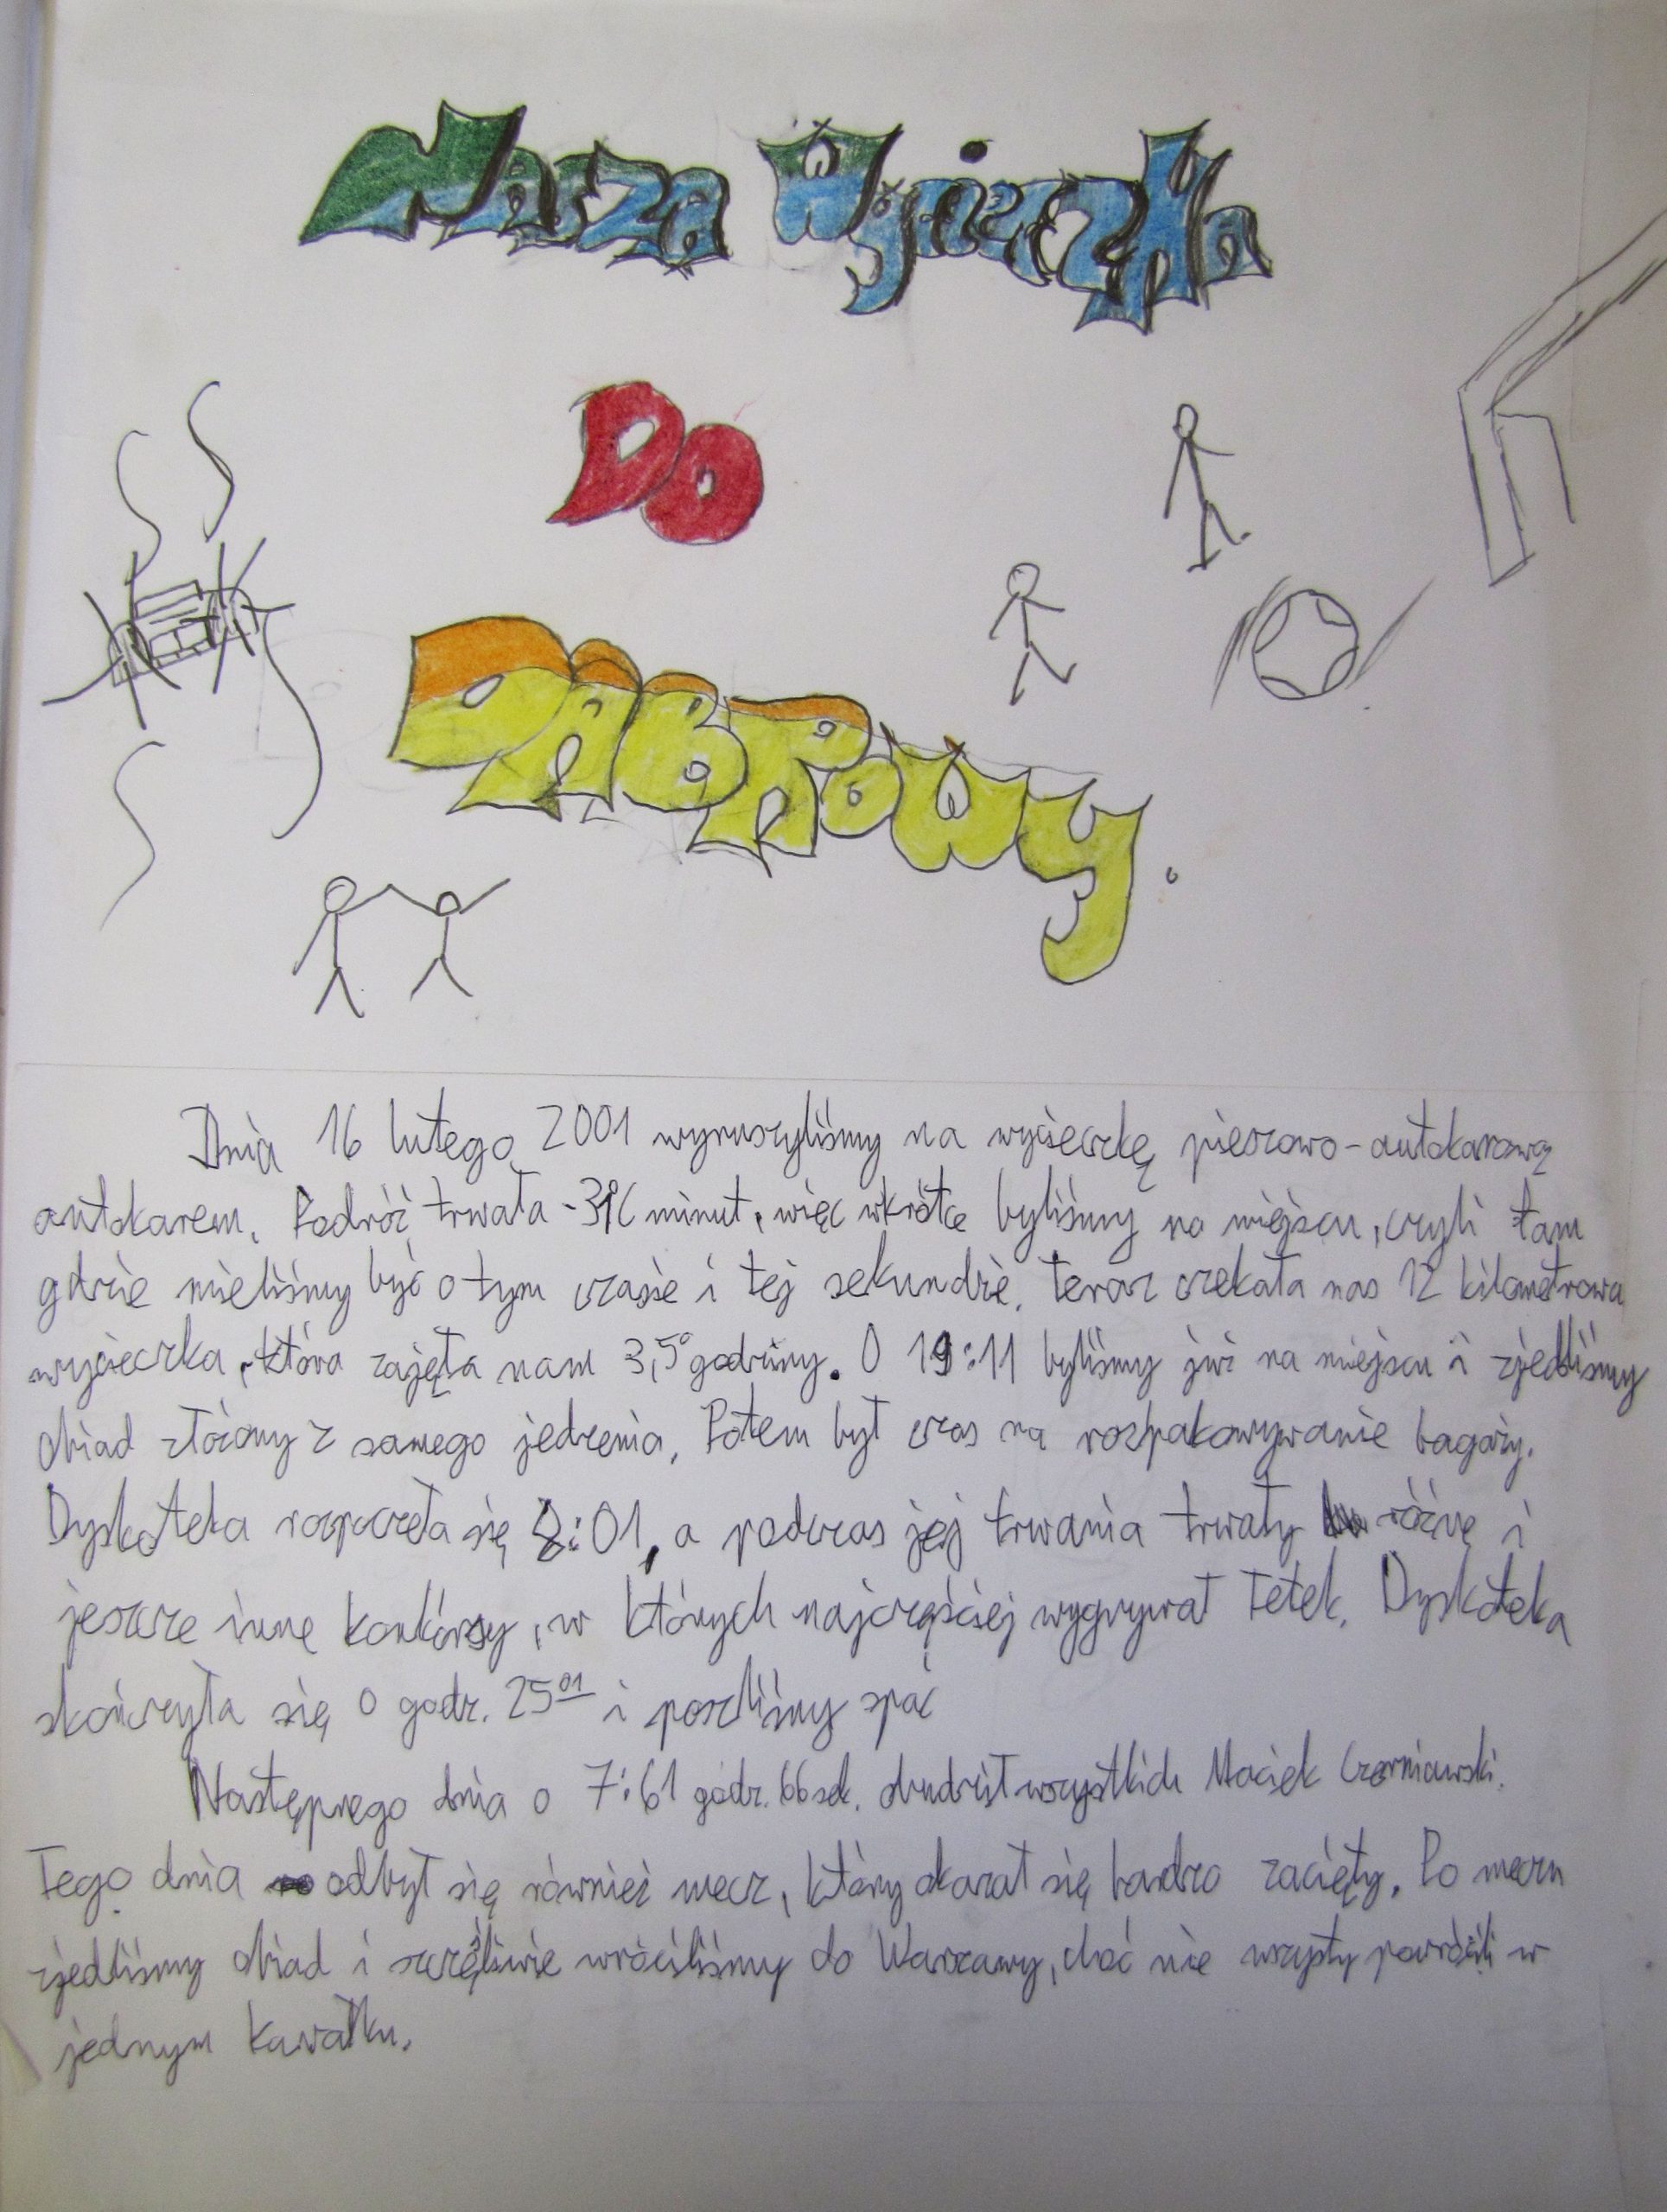 Nasza Wycieczka
DO
DĄBROWY.
Dnia 16 lutego 2001 wyruszyliśmy na wycieczkę pieszowo-autokarową
autokarem. Podróż trwała minut, więc wkrótce byliśmy na miejscu, czyli tam
gdzie mieliśmy być o tym czasie i tej sekundzie. teraz czekała nas 12 kilometrowa
wycieczka, która zajęła nam 3,5° godziny. O 19:11 byliśmy już na miejscu i zjedliśmy
obiad złożony z samego jedzenia. Potem był czas na rozpakowywanie bagaży.
Dyskoteka rozpoczeła się 8:01, a podczas jej trwania trwały różne i
jeszcze inne konkórsy, w których najczęściej wygrywał Tetek. Dyskoteka
skończyła się o godz. 25⁰¹ i poszliśmy spać
Następnego dnia o 7:61 godz. 66 sek. obudził wszystkich Maciek Czerniawski.
Tego dnia odbył się również mecz, który okazał się bardzo zacięty. Po meczu
zjedliśmy obiad i szczęśliwie wróciliśmy do Warszawy, choć nie wszyscy powrócili w
jednym kawałku.